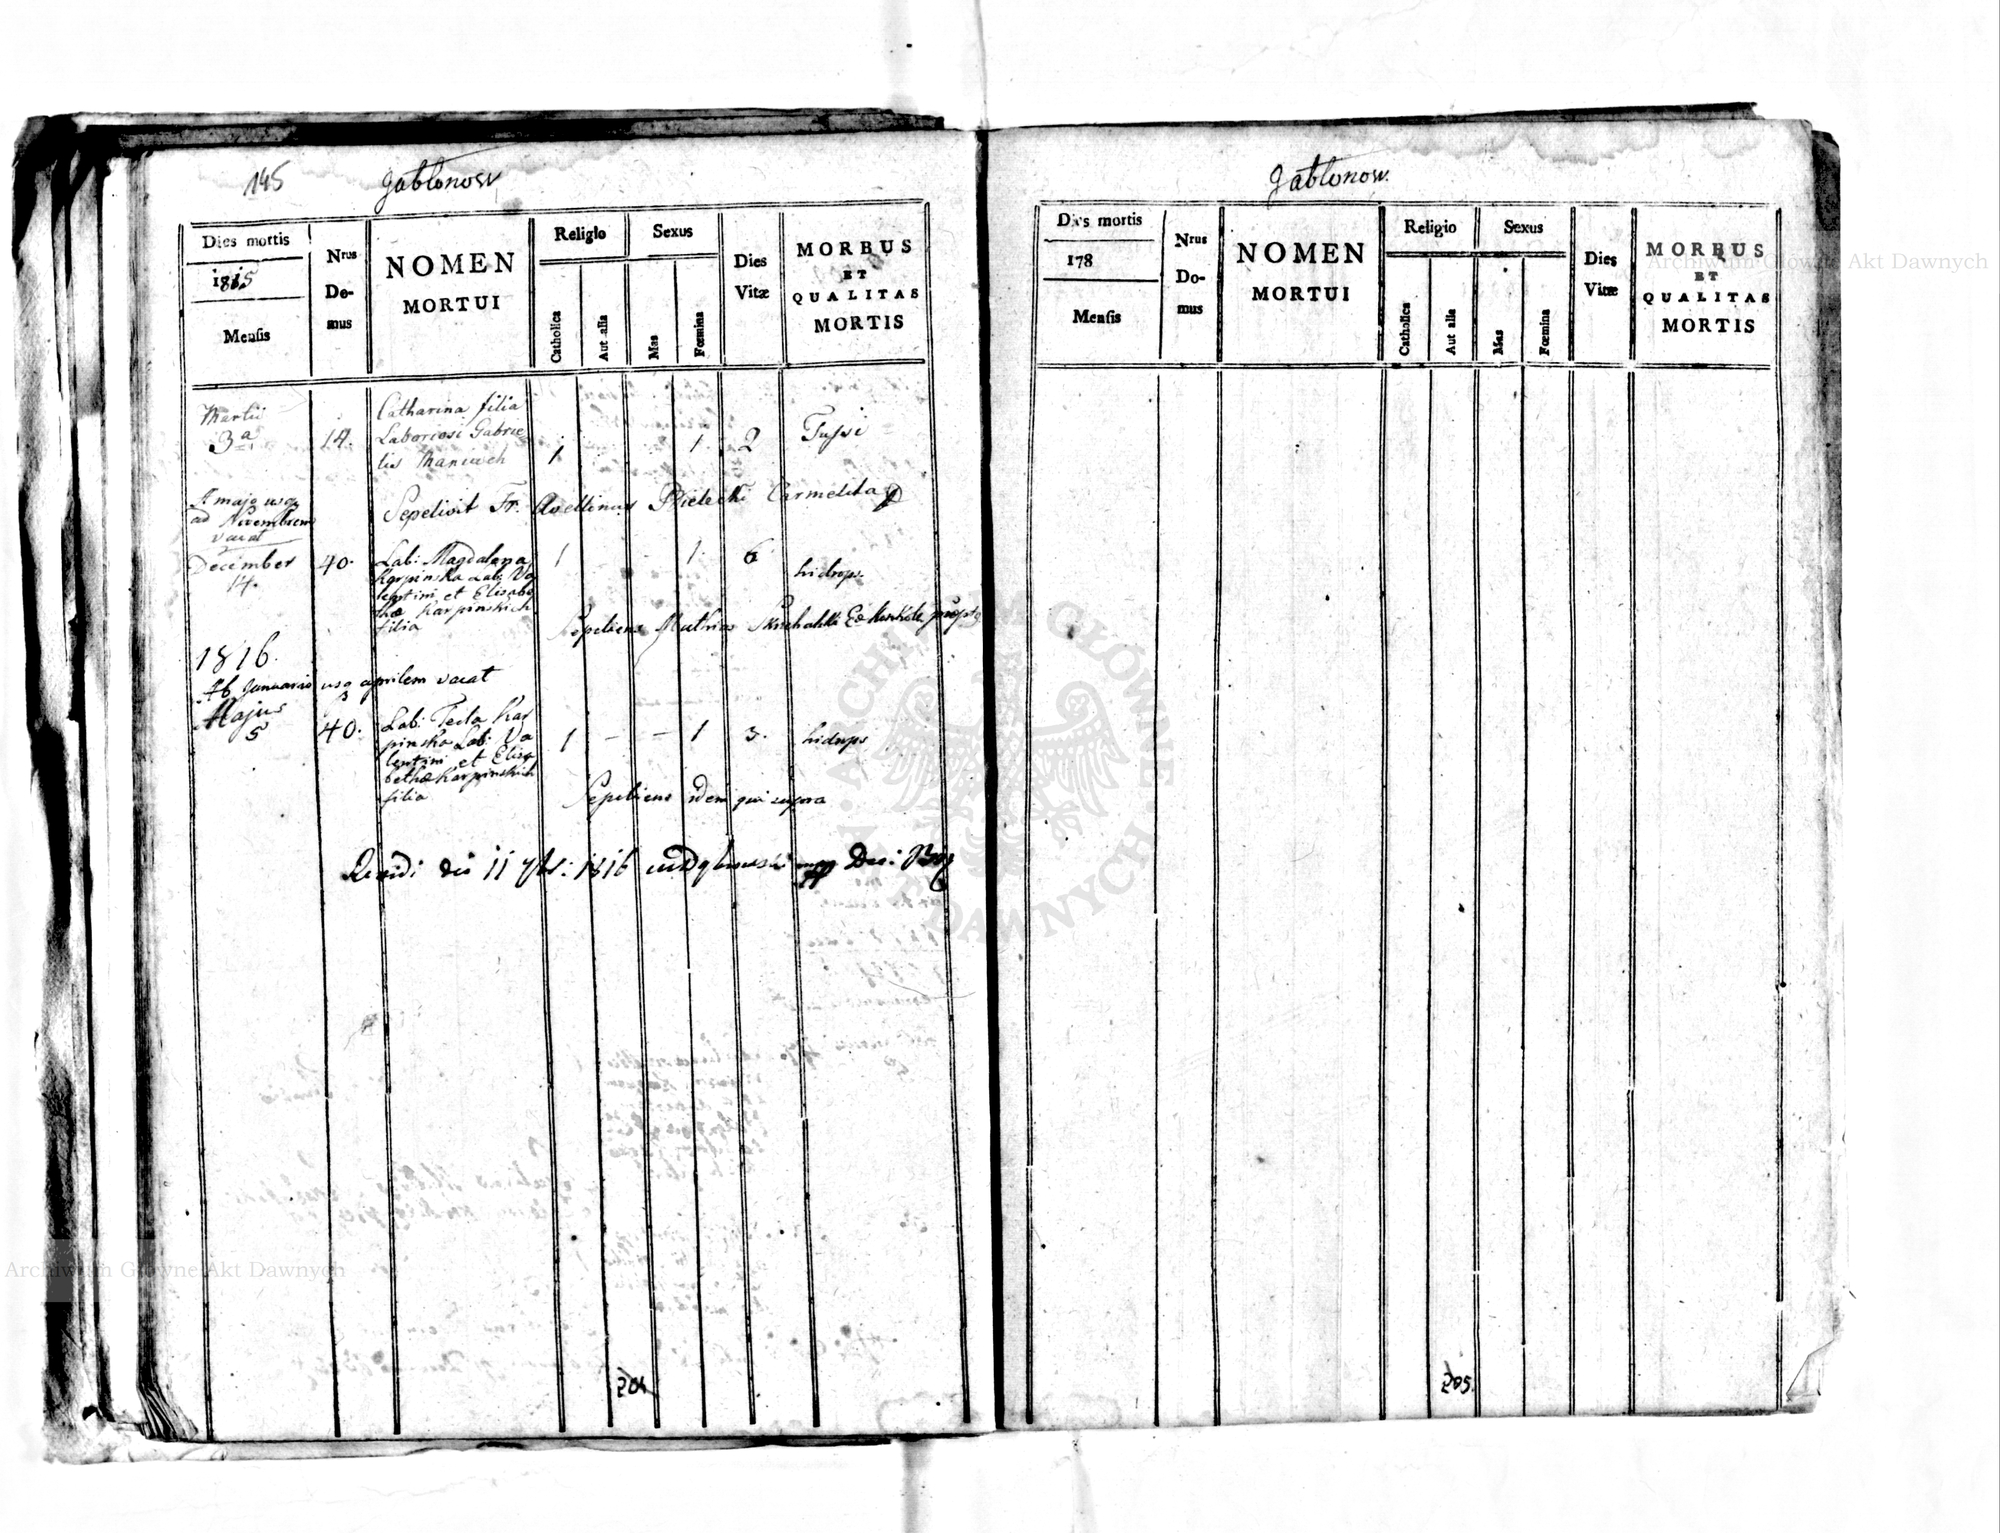 145
Jabłonow
Dies mortis
1815
Mensis
Nrus
Do-
mus
NOMEN
MORTUI
Religio
Catholica
Aut alia
Sexus
Mas
Fœmina
Dies
Vitæ
MORBUS
ET
QUALITAS
MORTIS
Martii
3a
14.
Catharina filia
Laboriosi Gabrie
lis
1
1
2
Tussi
A majo usq
ad Novembrem
vacat
Sepelivit Fr. Avellinus Bielecki Carmelita
December
14.
40.
Lab: Magdalena
Karpinska Lab: Va
lentini et Elisabe
thæ Karpinskich
filia
1
1
6
hidrops.
Sepeliens Mathias
1816.
Ab Januario usq aprilem vacat
Majus
5
40.
Lab: Tecla Kar
pinska Lab: Va
lentini et Elisa
bethæ Karpinskich
filia
1 – – 1
3.
hidrops
Sepeliens idem qui supra
die 11 1816
204
Jabłonow.
Dies mortis
178
Mensis
Nrus
Do-
mus
NOMEN
MORTUI
Religio
Catholica
Aut alia
Sexus
Mas
Fœmina
Dies
Vitæ
MORBUS
ET
QUALITAS
MORTIS
205.
Archiwum Główne Akt Dawnych
Archiwum Główne Akt Dawnych
ARCHIWUM GŁÓWNE
AKT DAWNYCH